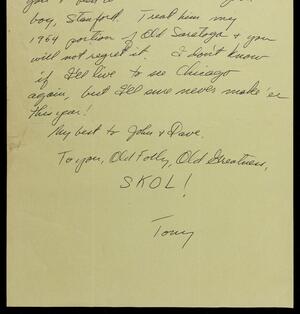 boy, Stanford. Treat him my
1964 portion of Old Saratoga & you
will not regret it. I don't know
if I'll live to see Chicago
again, but I'll sure never make 'er
this year!
My best to John & Dave.
To you, Old Folly, Old Greatness,
SKOL!
Tony